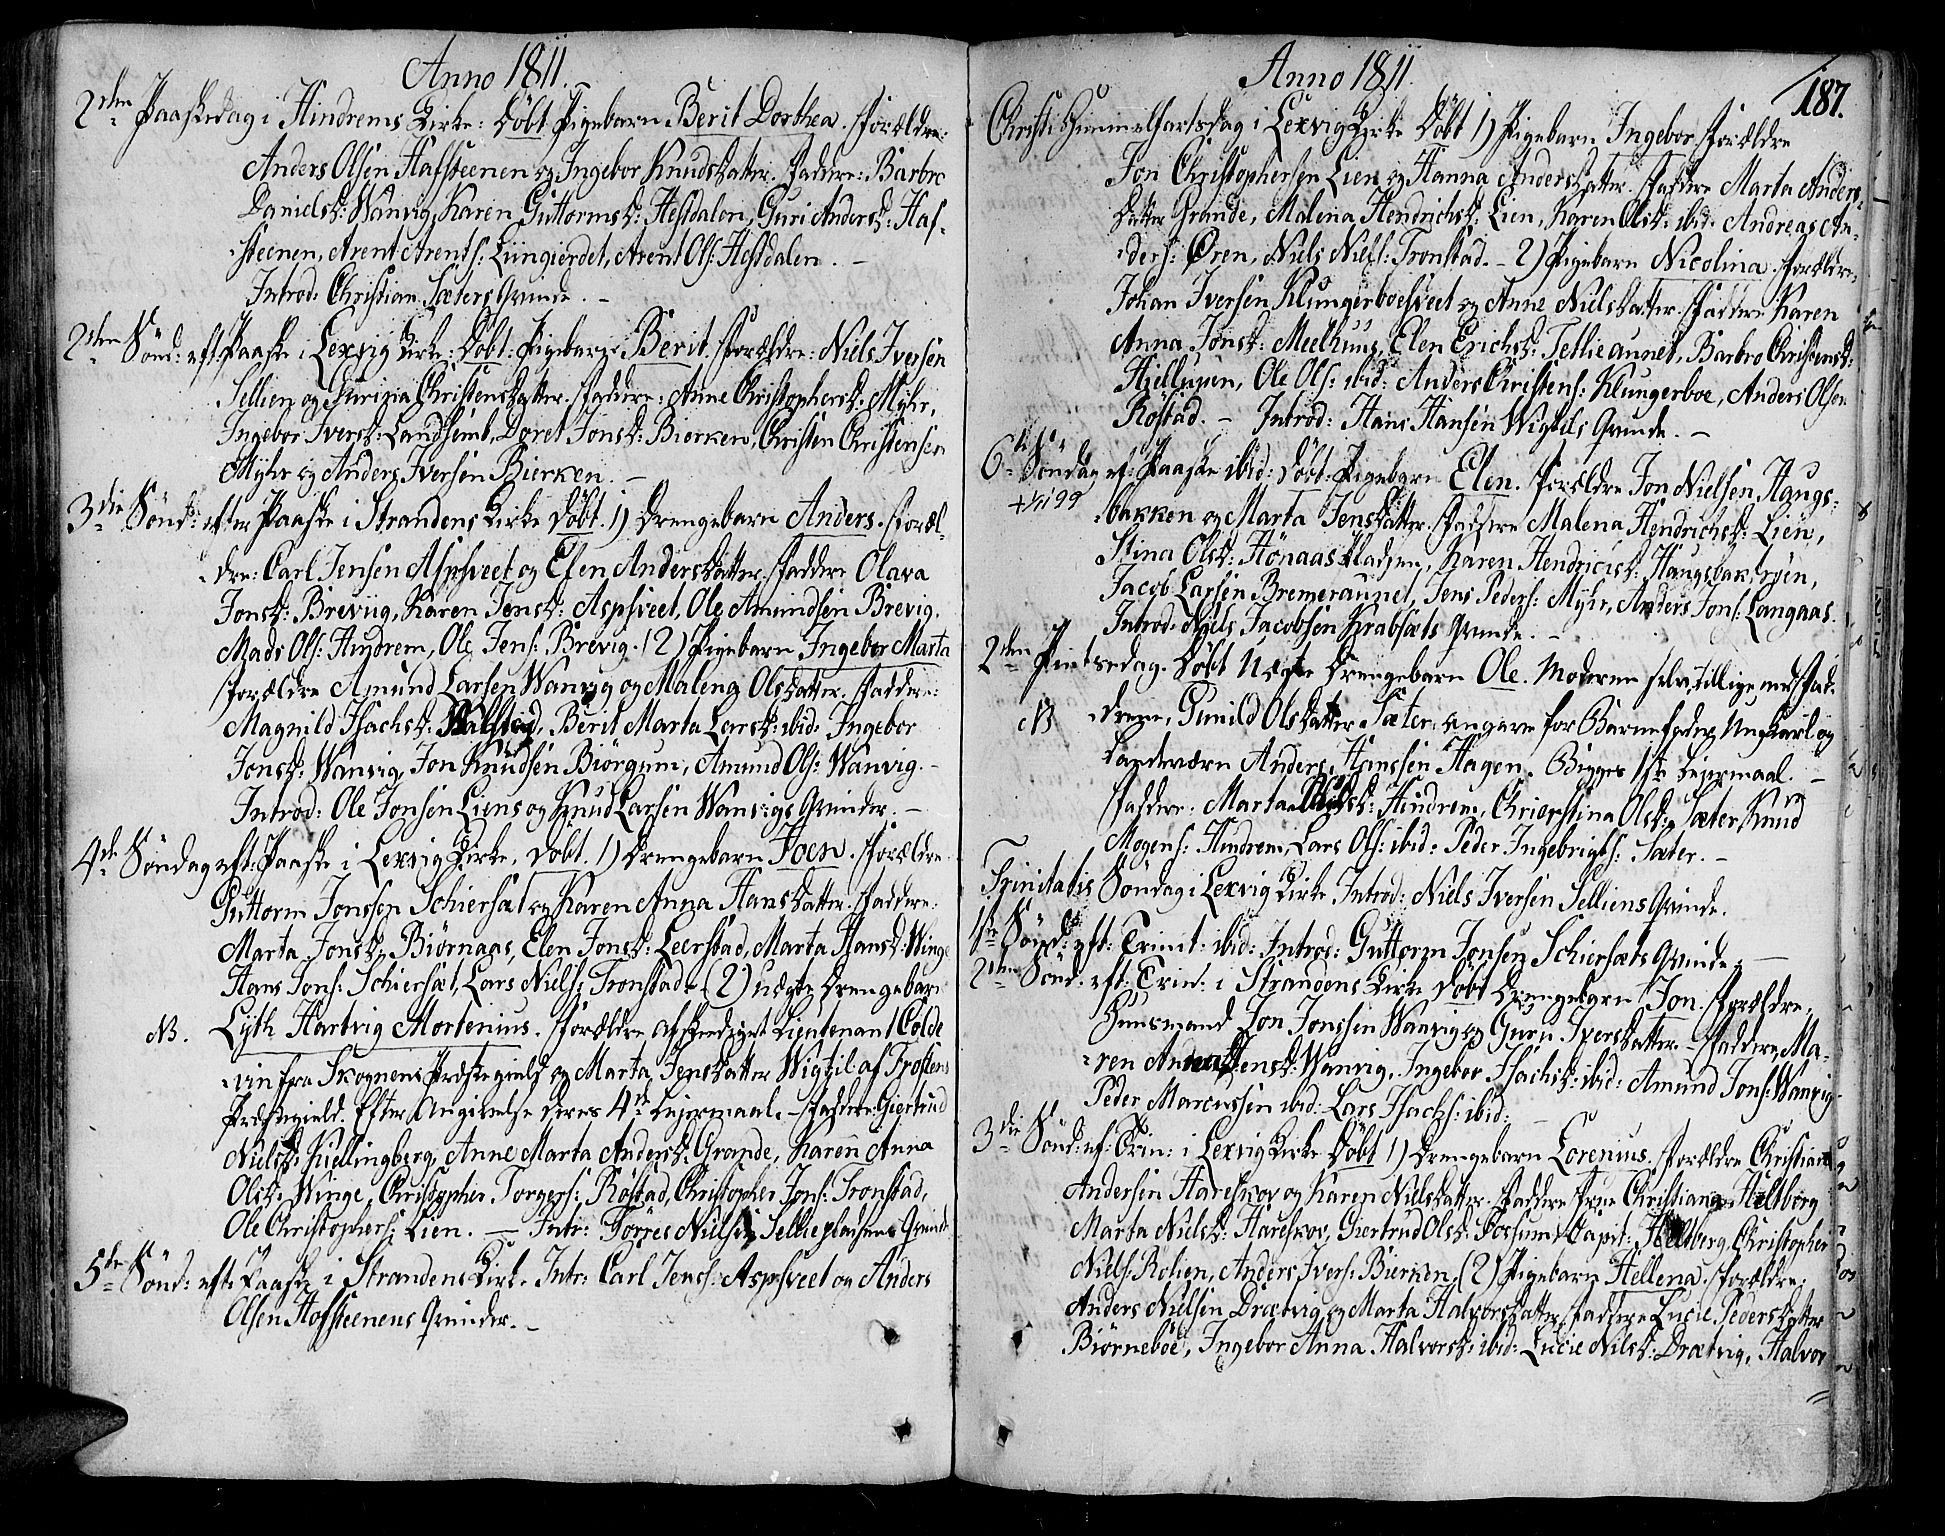 Anno 1811.
2den Paaskedag i Hindrems Kirke: Döbt Pigebarn Berit Dorthea. Forældre:
Anders Olsen Hafsteenen og Ingebor Knudsdatter. Faddere: Barbro
Danielsd: Wanvig, Karen Guttormsd: Hestdalen, Guri Andersd: Haf-
steenen, Arent Arents: Liingierdet, Arent Ols: Hestdalen. –
Introd: Christian Sæters Qvinde. –
2den Sönd: eft: Paaske i Lexvig Kirke: Döbt: Pigebarn Berit. Forældre: Niels Iversen
Sellien og Gurina Christensdatter. Faddere: Anne Christophersd: Myhr,
Ingebor Iversd: Landsemb, Doret Jonsd: Bierken, Christen Christensen
Myhr og Anders Iversen Bierken. –
3die Sönd: efter Paaske i Strandens Kirke Döbt. 1) Drengebarn Anders. Foræl-
dre: Carl Jensen Aspsveet og Elen Andersdatter. Faddere Olava
Jonsd: Breviig, Karen Jensd: Aspsveet, Ole Amundsen Brevig,
Mads Ols: Hindrem, Ole Jens: Brevig. (2) Pigebarn Ingebor Marta
Forældre Amund Larsen Wanvig og Malena Olsdatter. Faddere:
Magnild Isachsd: , Berit Marta Larsd: ibid: Ingebor
Jonsd: Wanvig, Jon Knudsen Biörgum, Amund Ols: Wanvig. –
Introd: Ole Jonsen Liens og Knud Larsen Wanvigs Qvinder. –
4de Söndag eft: Paaske i Lexvig Kirke, Döbt. 1) Drengebarn Joen. Forældre
Guttorm Jonssen Schiersæt og Karen Anna Hansdatter. Faddere:
Marta Jonsd: Biörnaas, Elen Jonsd: Leerstad, Marta Hansd: Winge
Hans Jons: Schiersæt, Lars Niels: Tronstad. (2) Uægte Drengebarn
NB. Lyth Hartvig Mortenius. Forældre afskediget Lieutenant Colde
vin fra Skognens Præstegield og Marta Jensdatter Wigtil af Frostens
Præstegield. Efter Angivelse deres 4de Leiermaal. – Faddere: Giertrud
Nielsd: Kiellingberg, Anne Marta Andersd: Grande, Karen Anna
Olsd: Winge, Christopher Torgers: Röstad, Christopher Jons: Tronstad,
Ole Christophers: Lien. – Intr: Törres Nielsen Selliepladsens Qvinde
5te Sönd: eft: Paaske i Strandens Kirke Intr: Carl Jens: Aspsveet og Anders
Olsen Hofsteenens Qvinder. –
Anno 1811.
187.
Christi Himmelfartsdag i Lexvig Kirke Döbt 1) Pigebarn Ingebor. Forældre
Jon Christophersen Lien og Hanna Andersdatter. Faddere Marta Anders-
datter Grande, Malena Hendrichsd: Lien, Karen Olsd: ibid: Andreas An-
ders: Øren, Niels Niels: Tronstad. – 2) Pigebarn Nicolina. Forældre
Johan Iversen Klungerboesveet og Anne Nielsdatter. Faddere Karen
Anna Jonsd: Meelhuus, Elen Erichsd: Tetlieaunet, Barbro Christensd:
Hiellupen, Ole Ols: ibid: Anders Christens: Klungerboe, Anders Olsen
Röstad. – Introd: Hans Hansen Wigtils Qvinde. –
6te Söndag ef: Paaske ibid: Döbt: Pigebarn Elen. Forældre Jon Nielsen Haugs-
bakken og Marta Jensdatter. Faddere Malena Hendrichsd: Lien,
Stina Olsd: Hönaaspladsen, Karen Hendrichsd: Haugsbakken,
Jacob Larsen Bremeraunet, Jens Peders: Myhr, Anders Jons: Langaas.
Introd: Niels Jacobsen Krabsæts Qvinde. –
2den Pintsedag. Döbt Uægte Drengebarn Ole. Moderen selv, tillige med Fad-
NB derne, Gunild Olsdatter Sæter, angave for Barnefader Ungkarl og
Landværn Anders Hanssen Hagen. Begges 1ste Leiermaal. –
Faddere: Marta Hindrem, Christina Olsd: Sæter, Knud
Mogens: Hindrem, Lars Ols: ibid: Peder Ingebrigts: Sæter. –
Trinitatis Söndag i Lexvig Kirke Introd: Niels Iversen Selliens Qvinde.
1ste Sönd: eft: Trinit: ibid: Introd: Guttorm Jonsen Schiersæts Qvinde. –
2den Sönd: eft: Trin: i Strandens Kirke Döbt Drengebarn Jon. Forældre,
Huusmand Jon Jonssen Wanvig og Guru Iversdatter. – Faddere, Ma-
ren Wanvig, Ingebor Isachsd: ibid: Amund Jons: Wanvig
Peder Marcussen ibid: Lars Isachs: ibid: –
3die Sönd: ef: Trin: i Lexvig Kirke Döbt 1) Drengebarn Lorenius. Forældre Christian
Andersen Hareskov og Karen Nielsdatter. Faddere Frue Christiane Heltberg
Marta Nielsd: Hareskov, Giertrud Olsd: Fossum, Capit: Heltberg, Christopher
Niels: Rolien, Anders Ivers: Bierken. (2) Pigebarn Hellena. Forældre:
Anders Nielsen Drætvig og Marta Halvorsdatter. Faddere Lucie Pedersdatter
Biörneböe, Ingebor Anna Halvorsd: ibid: Lucie Nilsd: Drætvig, Halvor